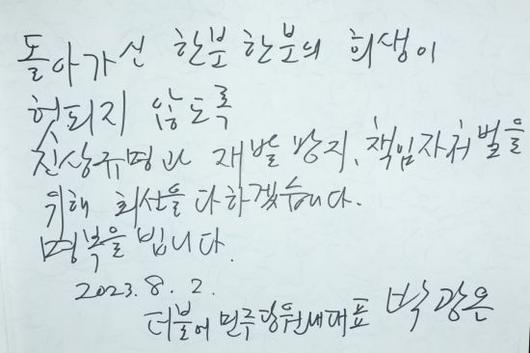 돌아가신 한분 한분의 희생이
헛되지 않도록
진상규명과 재발 방지, 책임자처벌을
위해 최선을 다하겠습니다.
명복을 빕니다.
2023. 8. 2.
더불어 민주당 원내대표 박광온